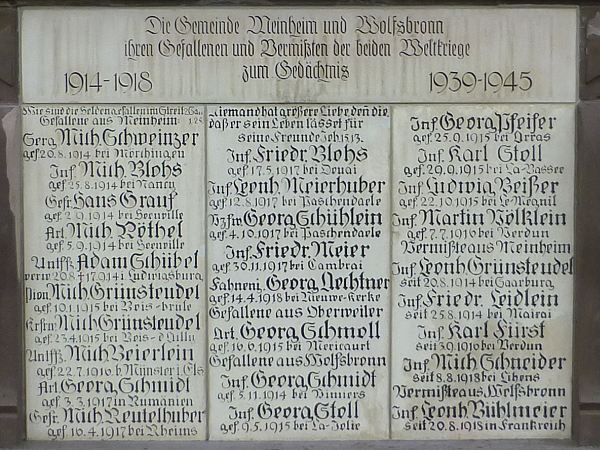 Die Gemeinde Meinheim und Wolfsbronn
ihren Gefallenen und Vermißten der beiden Weltkriege
1914-1918 zum Gedächtnis 1939-1945
Wie sind die Helden gefallen im Streit 2.Sam
Gefallene aus Meinheim 1.25
Serg. Mich. Schweinzer
gef. 20.8.1914 bei Mörchingen
Inf. Mich. Blohs
gef. 25.8.1914 bei Nancy
Gefr. Hans Grauf
gef. 2.9.1914 bei Seenville
Art. Mich. Röthel
gef. 5.9.1914 bei Seenville
Untffz. Adam Schübel
verw. 20.8. † 7.9.14 i. Ludwigsburg
Pion. Mich. Grünsteudel
gef. 10.1.1915 bei
Mich. Grünsteudel
gef. 23.4.1915 bei
Untffz. Mich. Beierlein
gef. 22.7.1916 b. Münster i. Els
Art. Georg Schmidt
gef. 3.3.1917 in Rumänien
Gefr. Mich. Reutelhuber
gef. 16.4.1917 bei Rheims
Niemand hat größere Liebe denn die,
daß er sein Leben lässet für
seine Freunde Joh 15.13.
Inf. Friedr. Blohs
gef. 17.5.1917 bei Douai
Inf. Leonh. Meierhuber
gef. 12.8.1917 bei Paschendaele
Vzfw. Georg Schühlein
gef. 4.10.1917 bei Paschendaele
Inf. Friedr. Meier
gef. 30.11.1917 bei Cambrai
Fahnenj. Georg Aechtner
gef. 14.4.1918 bei Nieuwe-Kerke
Gefallene aus Oberweiler
Art. Georg Schmoll
gef. 16.6.1915 bei Mericourt
Gefallene aus Wolfsbronn
Inf. Georg Schmidt
gef. 5.11.1914 bei
Inf. Georg Stoll
gef. 9.5.1915 bei La-Folie
Inf. Georg Pfeifer
gef. 25.9.1915 bei Arras
Inf. Karl Stoll
gef. 29.9.1915 bei La-Bassee
Inf. Ludwig Beißer
gef. 22.10.1915 bei Le Mesnil
Inf. Martin Völklein
gef. 7.7.1916 bei Verdun
Vermißte aus Meinheim
Inf. Leonh. Grünsteudel
seit 20.8.1914 bei Saarburg
Inf. Friedr. Leidlein
seit 25.8.1914 bei
Inf. Karl Fürst
seit 3.9.1916 bei Verdun
Inf. Mich. Schneider
seit 8.8.1918 bei Lihons
Vermißte aus Wolfsbronn
Inf. Leonh. Bühlmeier
seit 20.8.1918 in Frankreich